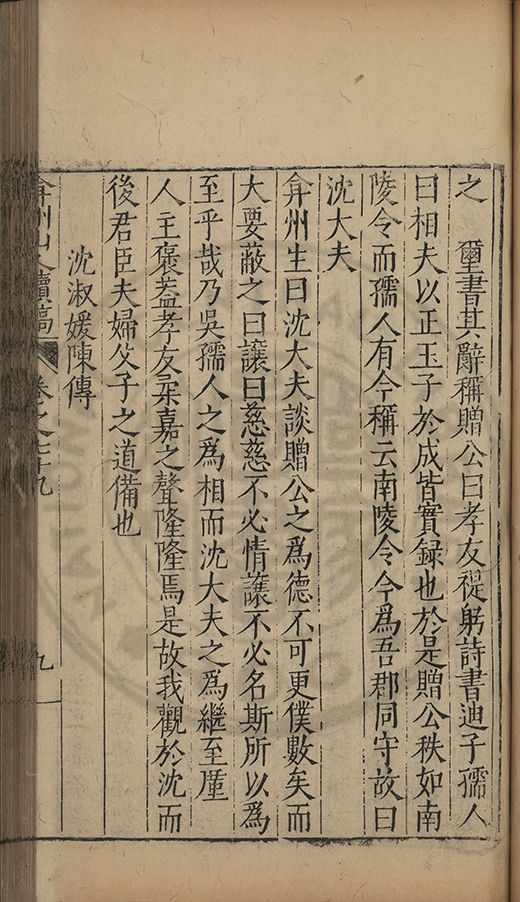 之　璽書其辭稱贈公曰孝友禔躬詩書迪子孺人
曰相夫以正玉子於成皆實録也於是贈公秩如南
陵令而孺人有今稱云南陵令今爲吾郡同守故曰
沈大夫
弇州生曰沈大夫談贈公之爲德不可更僕數矣而
大要蔽之曰讓曰慈慈不必情讓不必名斯所以爲
至乎哉乃吳孺人之爲相而沈大夫之爲繼至廑
人主褒益孝友柔嘉之聲隆隆焉是故我觀於沈而
後君臣夫婦父子之道備也
沈淑媛陳傳
弇州山人續稿
卷之七十九
九